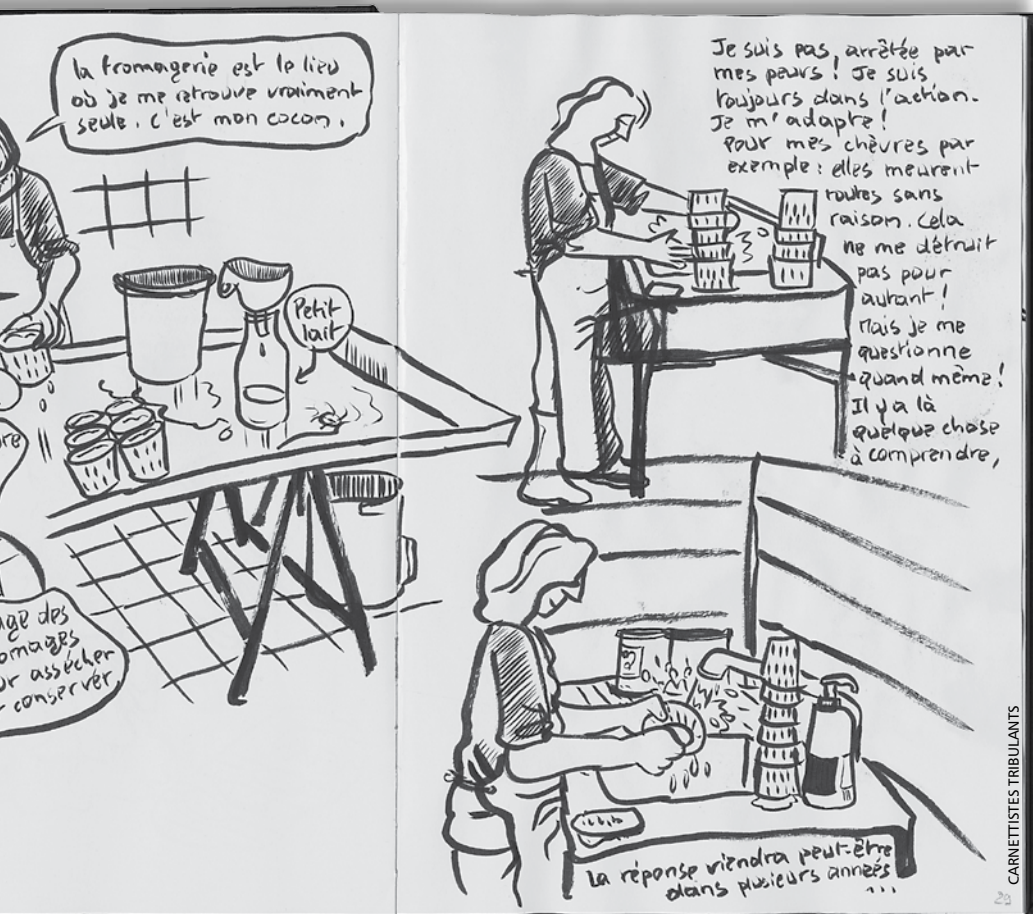 la fromagerie est le lieu
où je me retrouve vraiment
seule. c'est mon cocon.
Petit
lait
re
age des
omages
ur assécher
t conserver,
Je suis pas arrêtée par
mes peurs ! Je suis
toujours dans l'action.
Je m'adapte !
Pour mes chèvres par
exemple : elles meurent
toutes sans
raison. Cela
ne me détruit
pas pour
autant !
Mais je me
questionne
quand même !
Il y a là
quelque chose
à comprendre,
La réponse viendra peut-être
dans plusieurs années
...
CARNETTISTES TRIBULANTS
29